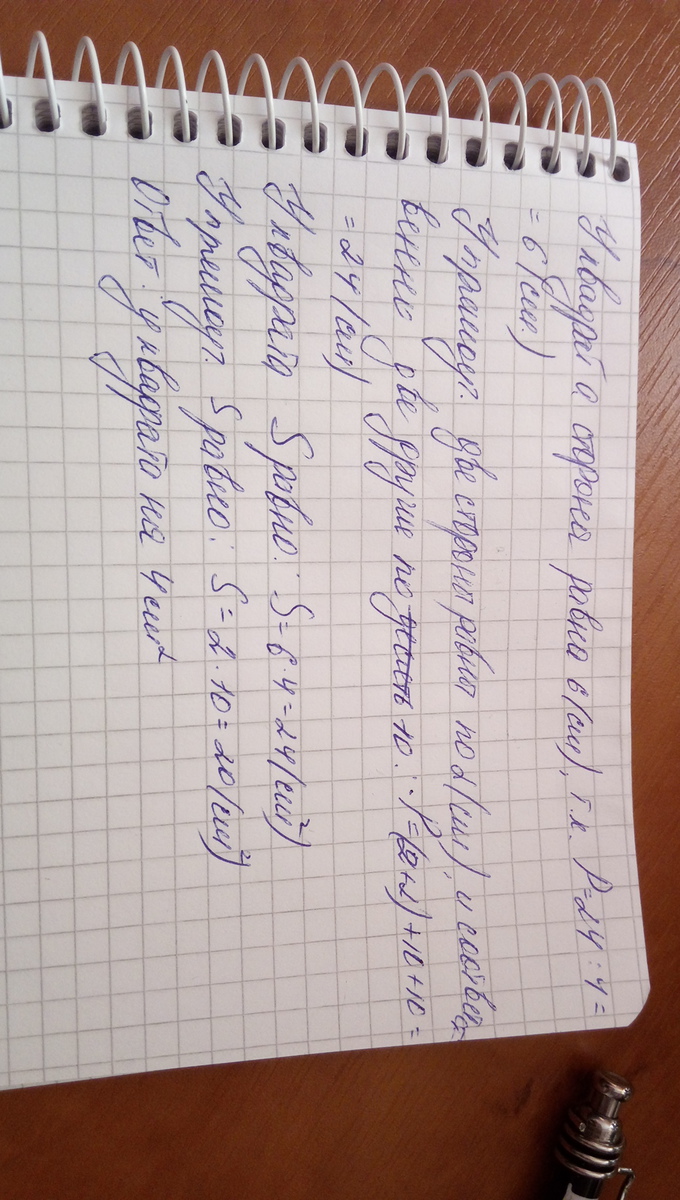 У квадрата сторона равна 6(см), т.к. P=24:4=
=6(см)
У прямоуг. две стороны равны по 2(см), и соответ
венно две другие по 10. P=(2+2)+10+10=
=24(см)
У квадрата S равно: S=6·4=24(см²)
У прямоуг. S равно: S=2·10=20(см²)
Ответ: у квадрата на 4см²